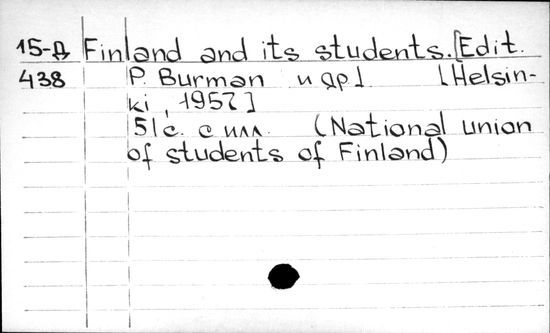 15-Д Finland and its students. [Edit.
438 P. Burman и др] [Helsin-
ki, 1957]
51с. с илл. (National union
of students of Finland)